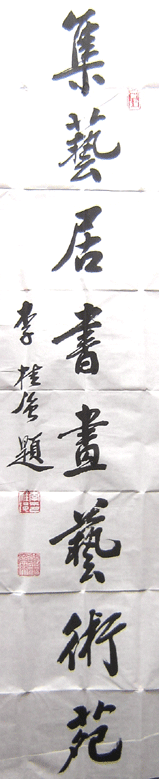 集藝居書畫藝術苑
李桂金題